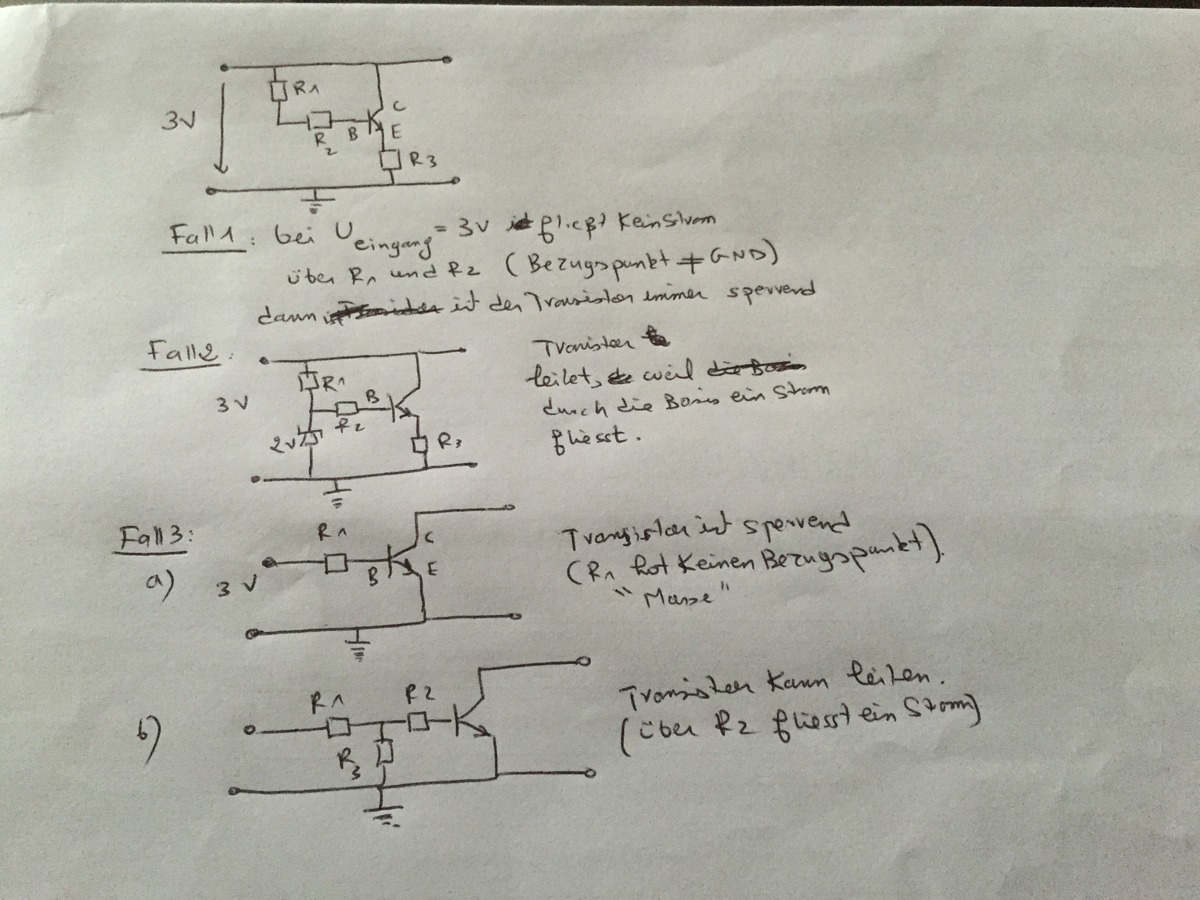 R1
C
3V
R2
B
E
R3
Fall 1: bei U eingang = 3V fließt kein Strom
über R1 und R2 (Bezugspunkt ≠ GND)
dann ist der Transistor immer sperrend
Fall 2:
Transistor
R1
B
leitet, weil
3V
R2
durch die Basis ein Strom
2V
R3
fliesst.
Fall 3:
R1
C
Transistor ist sperrend
a)
3V
B
E
(R1 hat keinen Bezugspunkt).
"Masse"
R1
R2
Transistor kann leiten.
b)
R3
(über R2 fliesst ein Strom)